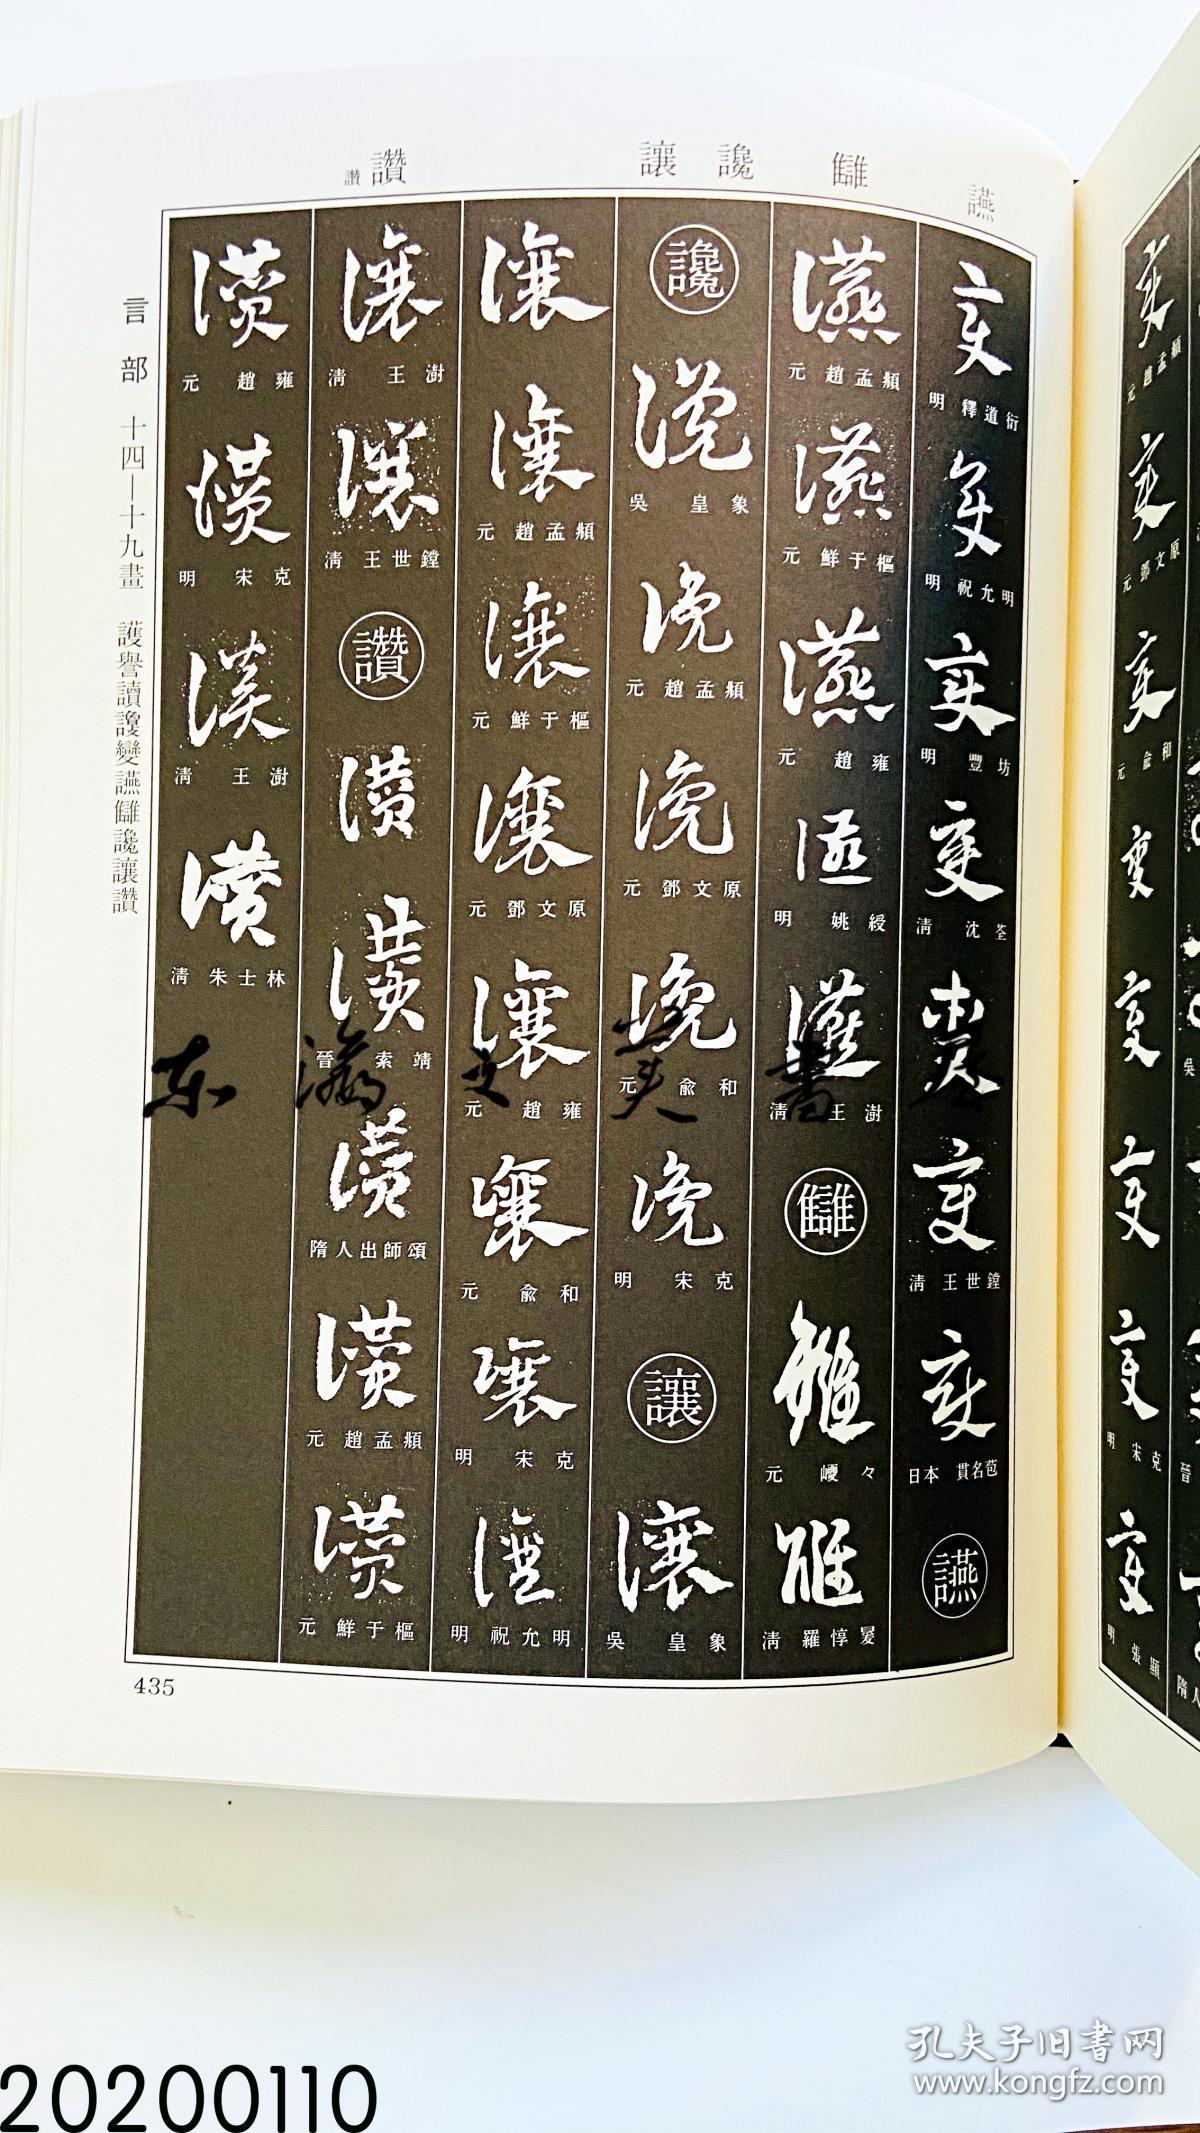 讌
讎
讒
讓
讚
讃
明 釋道衍
明 祝允明
明 豐坊
清 沈荃
清 王世鏜
日本 貫名苞
讌
元 趙孟頫
元 鮮于樞
元 趙雍
明 姚綬
清 王澍
讎
元 巙々
清 羅惇㬊
讒
吳 皇象
元 趙孟頫
元 鄧文原
元 兪和
明 宋克
讓
吳 皇象
元 趙孟頫
元 鮮于樞
元 鄧文原
元 趙雍
元 兪和
明 宋克
明 祝允明
清 王澍
清 王世鏜
讚
晉 索靖
隋人出師頌
元 趙孟頫
元 鮮于樞
元 趙雍
明 宋克
清 王澍
清 朱士林
言部 十四—十九畫 護譽讀讂變讌讎讒讓讚
435
元 趙孟頫
元 鄧文原
元 兪和
明 宋克
明 張顚
东瀛文美書屋
孔夫子旧書网
www.kongfz.com
20200110